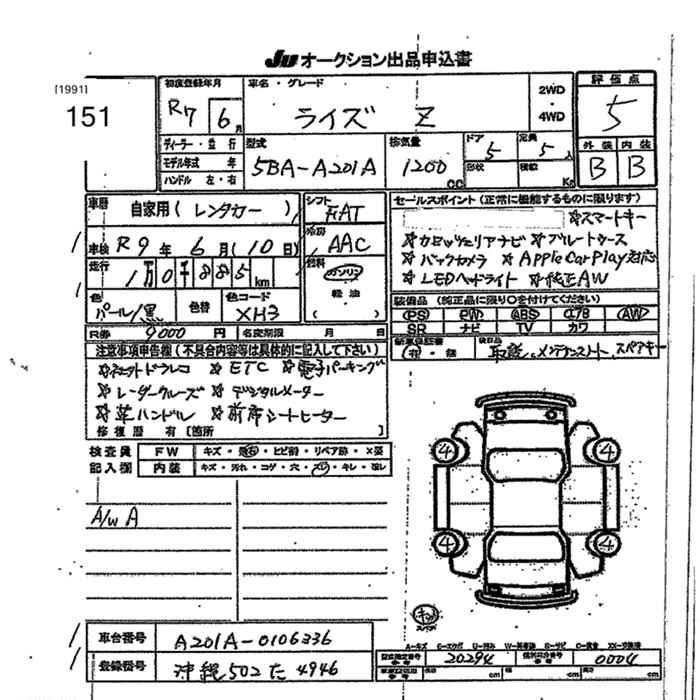 JU オークション出品申込書
[1991]
151
初度登録年月
R7 6月
車名・グレード
ライズ Z
2WD
・
4WD
評価点
5
ディーラー・並行
モデル年式 年
ハンドル 左・右
型式
5BA-A201A
排気量
1200 cc
ドア
5
形状
定員
5人
積載
Kg
外装 内装
B B
車歴 自家用(レンタカー)
シフト
FAT
車検 R9年6月(10日)
冷房
AAC
走行 1万0千885km
燃料
ガソリン
軽油
( )
色
パール/黒
色替
色コード
XH3
R券 9000円 名変期限 月 日
セールスポイント(正常に機能するものに限ります)
☆スマートキー
☆カロッツェリアナビ ☆ブルートゥース
☆バックカメラ ☆Apple CarPlay対応
☆LEDヘッドライト ☆純正AW
装備品(純正品に限り○を付けてください)
PS PW ABS エアB AW
SR ナビ TV カワ
新車保証書 有・無
後日品 取説、メンテナンスノート、スペアキー
注意事項申告欄(不具合内容等は具体的に記入して下さい)
☆ ETC ☆電子パーキング
☆レーダークルーズ ☆デジタルメーター
☆革ハンドル ☆前席シートヒーター
修復歴 有〔箇所 〕
検査員
記入欄
FW キズ・飛石・ヒビ割・リペア跡・X要
内装 キズ・汚れ・コゲ・穴・スレ・キレ・
A/W A
4 4
4 4
車台番号 A201A-0106336
登録番号 沖縄502た4946
A-キズ E-エクボ U-凹み S-サビ C-腐食 XX-交換済
型式指定番号 20294 類別区分番号 0004
長さ cm 幅 cm 高さ cm